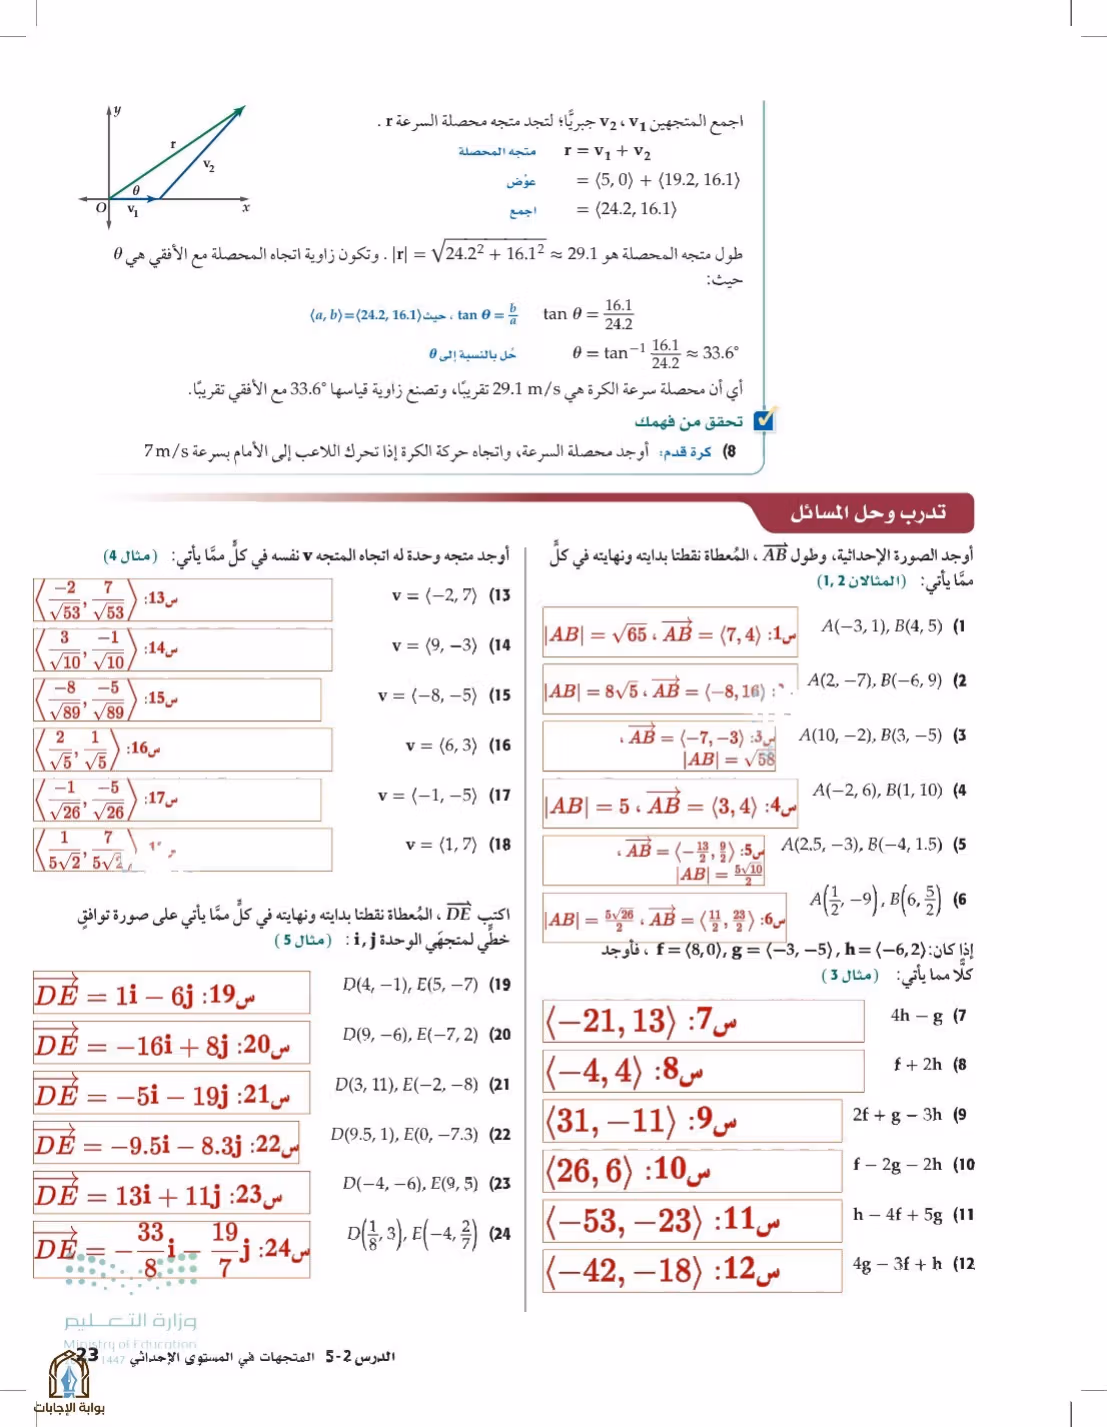 y
r
v₂
θ
O
v₁
x
اجمع المتجهين v₁ ، v₂ جبريًّا؛ لتجد متجه محصلة السرعة r .
r = v₁ + v₂ متجه المحصلة
= ⟨5, 0⟩ + ⟨19.2, 16.1⟩ عوّض
= ⟨24.2, 16.1⟩ اجمع
طول متجه المحصلة هو |r| = √(24.2² + 16.1²) ≈ 29.1 . وتكون زاوية اتجاه المحصلة مع الأفقي هي θ
حيث:
tan θ = 16.1/24.2 tan θ = b/a ، حيث ⟨a, b⟩=⟨24.2, 16.1⟩
θ = tan⁻¹ 16.1/24.2 ≈ 33.6° حُل بالنسبة إلى θ
أي أن محصلة سرعة الكرة هي 29.1 m/s تقريبًا، وتصنع زاوية قياسها 33.6° مع الأفقي تقريبًا.
تحقق من فهمك
8) كرة قدم: أوجد محصلة السرعة، واتجاه حركة الكرة إذا تحرك اللاعب إلى الأمام بسرعة 7 m/s
تدرب وحل المسائل
أوجد الصورة الإحداثية، وطول AB⃗ ، المُعطاة نقطتا بدايته ونهايته في كلٍّ
ممَّا يأتي: (المثالان 1, 2)
1) A(−3, 1), B(4, 5)
س1: AB⃗ = ⟨7, 4⟩ ، |AB| = √65
2) A(2, −7), B(−6, 9)
AB⃗ = ⟨−8, 16⟩ ، |AB| = 8√5
3) A(10, −2), B(3, −5)
س3: AB⃗ = ⟨−7, −3⟩ ،
|AB| = √58
4) A(−2, 6), B(1, 10)
س4: AB⃗ = ⟨3, 4⟩ ، |AB| = 5
5) A(2.5, −3), B(−4, 1.5)
س5: AB⃗ = ⟨−13/2, 9/2⟩ ،
|AB| = 5√10/2
6) A(1/2, −9), B(6, 5/2)
س6: AB⃗ = ⟨11/2, 23/2⟩ ، |AB| = 5√26/2
إذا كان: f = ⟨8, 0⟩, g = ⟨−3, −5⟩, h = ⟨−6, 2⟩ ، فأوجد
كلًّا مما يأتي: (مثال 3)
7) 4h − g
س7: ⟨−21, 13⟩
8) f + 2h
س8: ⟨−4, 4⟩
9) 2f + g − 3h
س9: ⟨31, −11⟩
10) f − 2g − 2h
س10: ⟨26, 6⟩
11) h − 4f + 5g
س11: ⟨−53, −23⟩
12) 4g − 3f + h
س12: ⟨−42, −18⟩
أوجد متجه وحدة له اتجاه المتجه v نفسه في كلٍّ ممَّا يأتي: (مثال 4)
13) v = ⟨−2, 7⟩
س13: ⟨−2/√53, 7/√53⟩
14) v = ⟨9, −3⟩
س14: ⟨3/√10, −1/√10⟩
15) v = ⟨−8, −5⟩
س15: ⟨−8/√89, −5/√89⟩
16) v = ⟨6, 3⟩
س16: ⟨2/√5, 1/√5⟩
17) v = ⟨−1, −5⟩
س17: ⟨−1/√26, −5/√26⟩
18) v = ⟨1, 7⟩
⟨1/5√2, 7/5√2
اكتب DE⃗ ، المُعطاة نقطتا بدايته ونهايته في كلٍّ ممَّا يأتي على صورة توافقٍ
خطِّي لمتجهَي الوحدة i, j : (مثال 5)
19) D(4, −1), E(5, −7)
س19: DE⃗ = 1i − 6j
20) D(9, −6), E(−7, 2)
س20: DE⃗ = −16i + 8j
21) D(3, 11), E(−2, −8)
س21: DE⃗ = −5i − 19j
22) D(9.5, 1), E(0, −7.3)
س22: DE⃗ = −9.5i − 8.3j
23) D(−4, −6), E(9, 5)
س23: DE⃗ = 13i + 11j
24) D(1/8, 3), E(−4, 2/7)
س24: DE⃗ = −33/8 i − 19/7 j
وزارة التعليم
Ministry of Education
1447
الدرس 2-5 المتجهات في المستوى الإحداثي 23
بوابة الإجابات